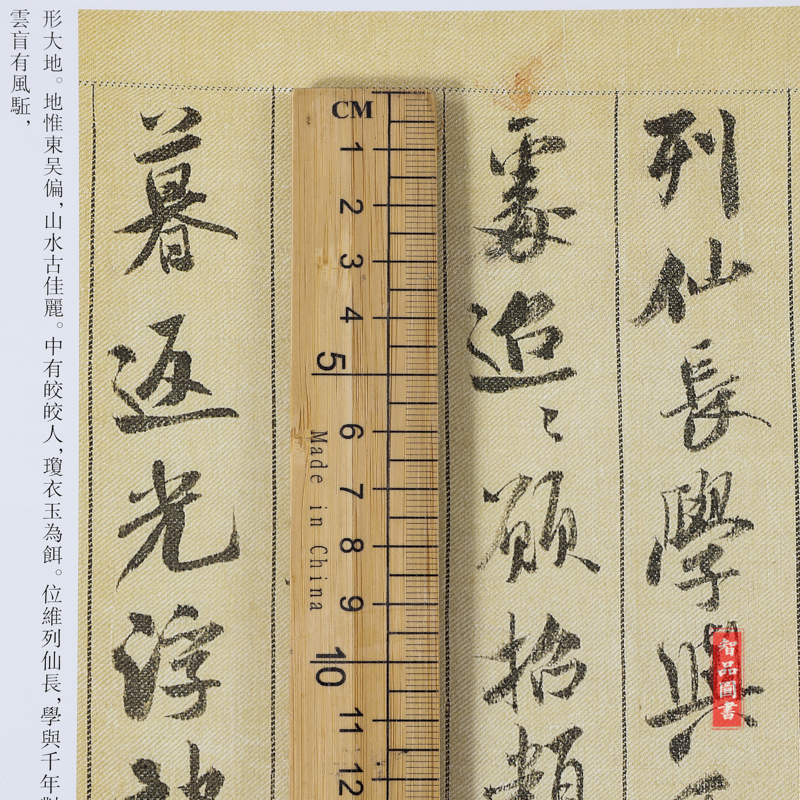 列仙長學與
處迢〻願招類
暮返光浮
智品圖書
CM
1
2
3
4
5
6
7
8
9
10
11
12
Made in China
形大地。地惟東吴偏，山水古佳麗。中有皎皎人，瓊衣玉為餌。位維列仙長，學與千年
雲盲有風駈，